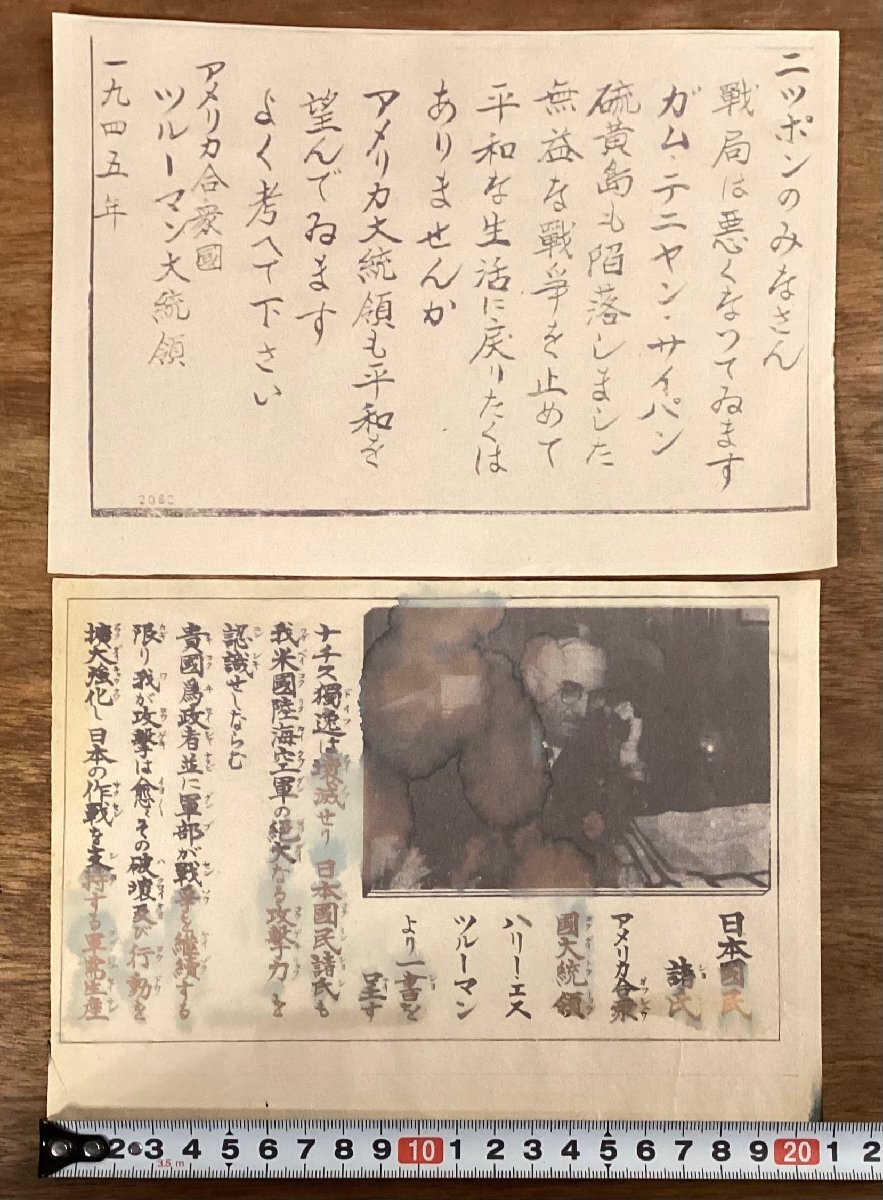 ニッポンのみなさん
戰局は悪くなつてゐます
ガム・テニヤン・サイパン
硫黄島も陷落しました
無益な戰爭を止めて
平和な生活に戻りたくは
ありませんか
アメリカ大統領も平和を
望んでゐます
よく考へて下さい
アメリカ合衆國
ツルーマン大統領
一九四五年
2063
日本國民
諸氏
アメリカ合衆
國大統領
ハリー・エス
ツルーマン
より一書を
呈す
ナチス獨逸は壊滅せり 日本國民諸氏も
我米國陸海空軍の絕大なる攻擊力を
認識せしならむ
貴國爲政者並に軍部が戰爭を繼續する
限り我が攻擊は愈〻その破壞及び行動を
擴大強化し日本の作戰を支持する軍需生產
2 3 4 5 6 7 8 9 10 1 2 3 4 5 6 7 8 9 20 1 2
3.5 m